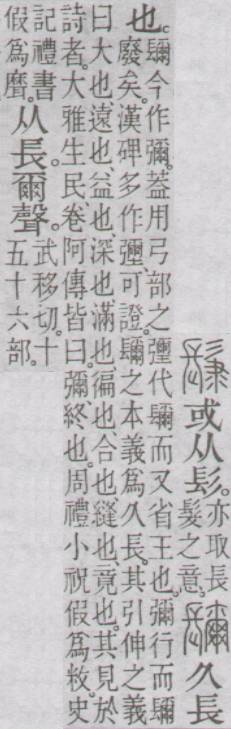 或从髟。亦取長
髮之意。镾久長
也。镾今作彌。蓋用弓部之㢱代镾而又省王也。彌行而镾
廢矣。漢碑多作㢱。可證。镾之本義爲久長。其引伸之義
曰大也、遠也、益也、深也、滿也、徧也、合也、縫也、竟也。其見於
詩者。大雅生民、卷阿傳皆曰。彌終也。周禮小祝假爲敉。史
記禮書
假爲縻。从長。爾聲。武移切。十
五十六部。